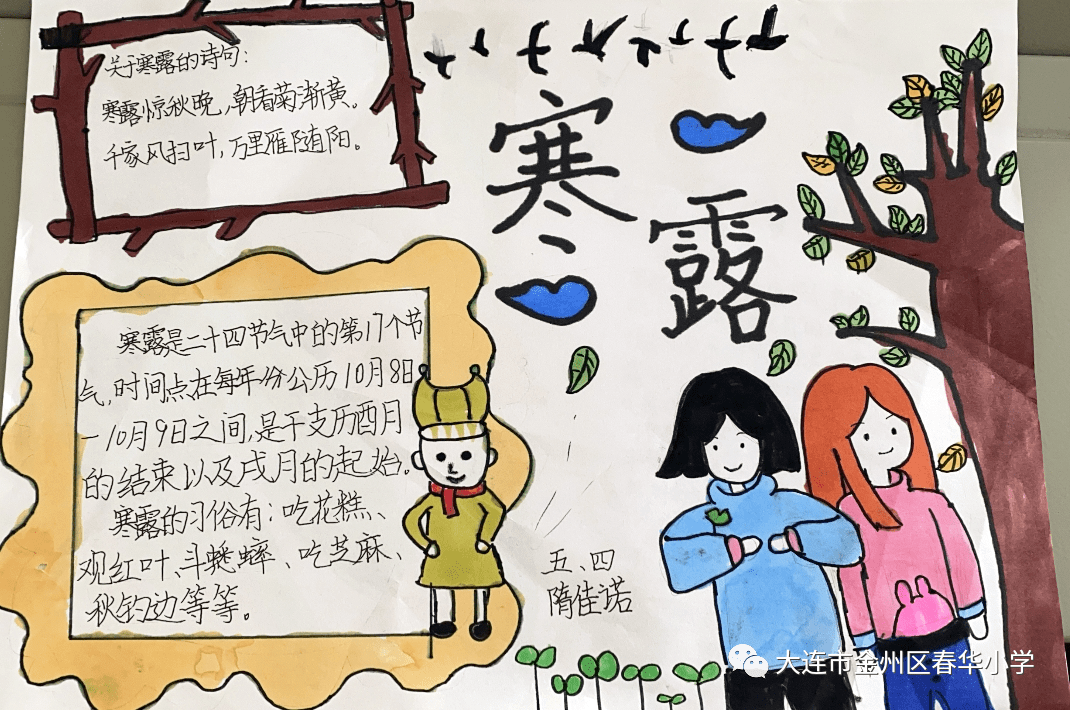 关于寒露的诗句：
寒露惊秋晚，朝看菊渐黄。
千家风扫叶，万里雁随阳。
寒露
寒露是二十四节气中的第17个节
气，时间点在每年份公历10月8日
－10月9日之间，是干支历酉月
的结束以及戌月的起始。
寒露的习俗有：吃花糕、
观红叶、斗蟋蟀、吃芝麻、
秋钓边等等。
五、四
隋佳诺
大连市金州区春华小学